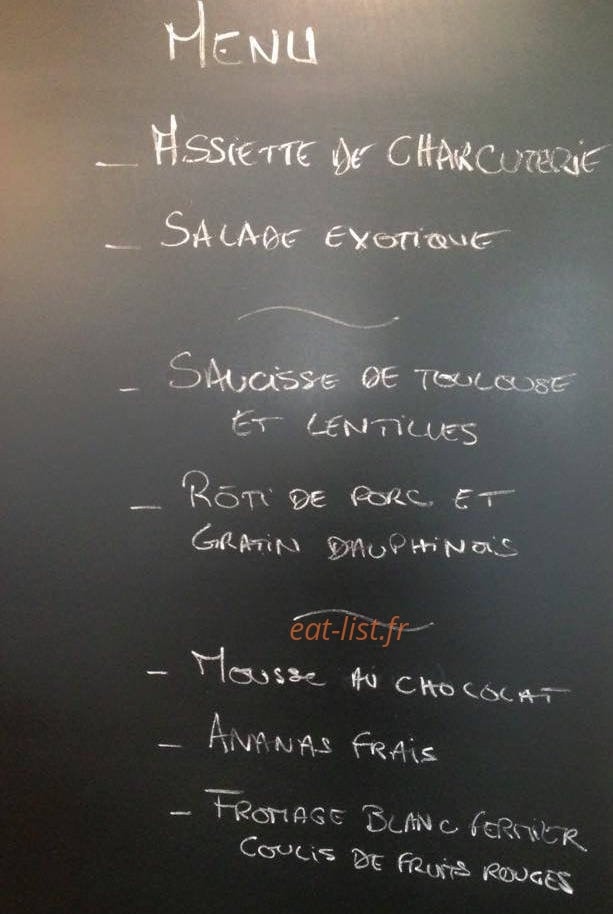 MENU
- ASSIETTE DE CHARCUTERIE
- SALADE EXOTIQUE
- SAUCISSE DE TOULOUSE
ET LENTILLES
- RÔTI DE PORC ET
GRATIN DAUPHINOIS
eat-list.fr
- MOUSSE AU CHOCOLAT
- ANANAS FRAIS
- FROMAGE BLANC FERMIER
COULIS DE FRUITS ROUGES